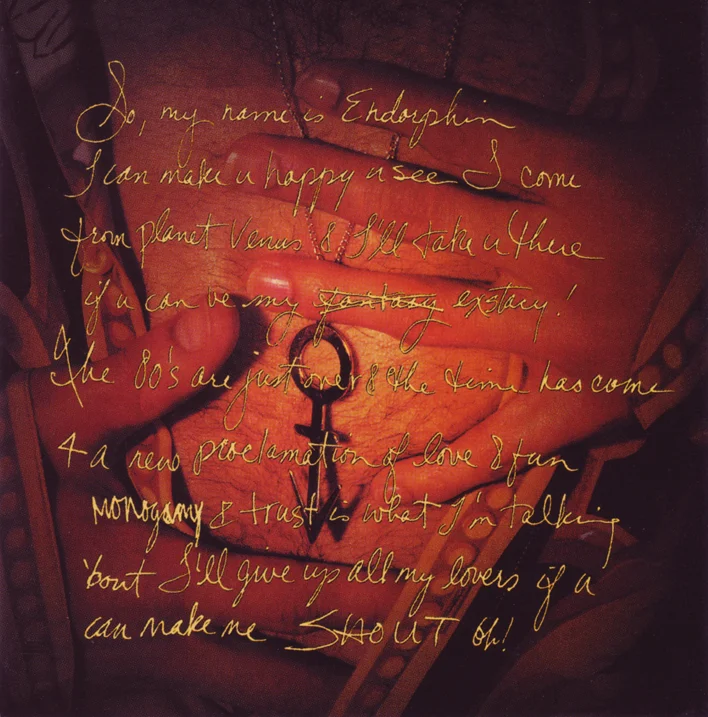 So, my name is Endorphin
I can make u happy u see I come
from planet Venus & I'll take u there
if u can be my fantasy extacy!
The 80's are just over & the time has come
4 a new proclamation of love & fun
Monogamy & trust is what I'm talking
'bout I'll give up all my lovers if u
can make me SHOUT oh!